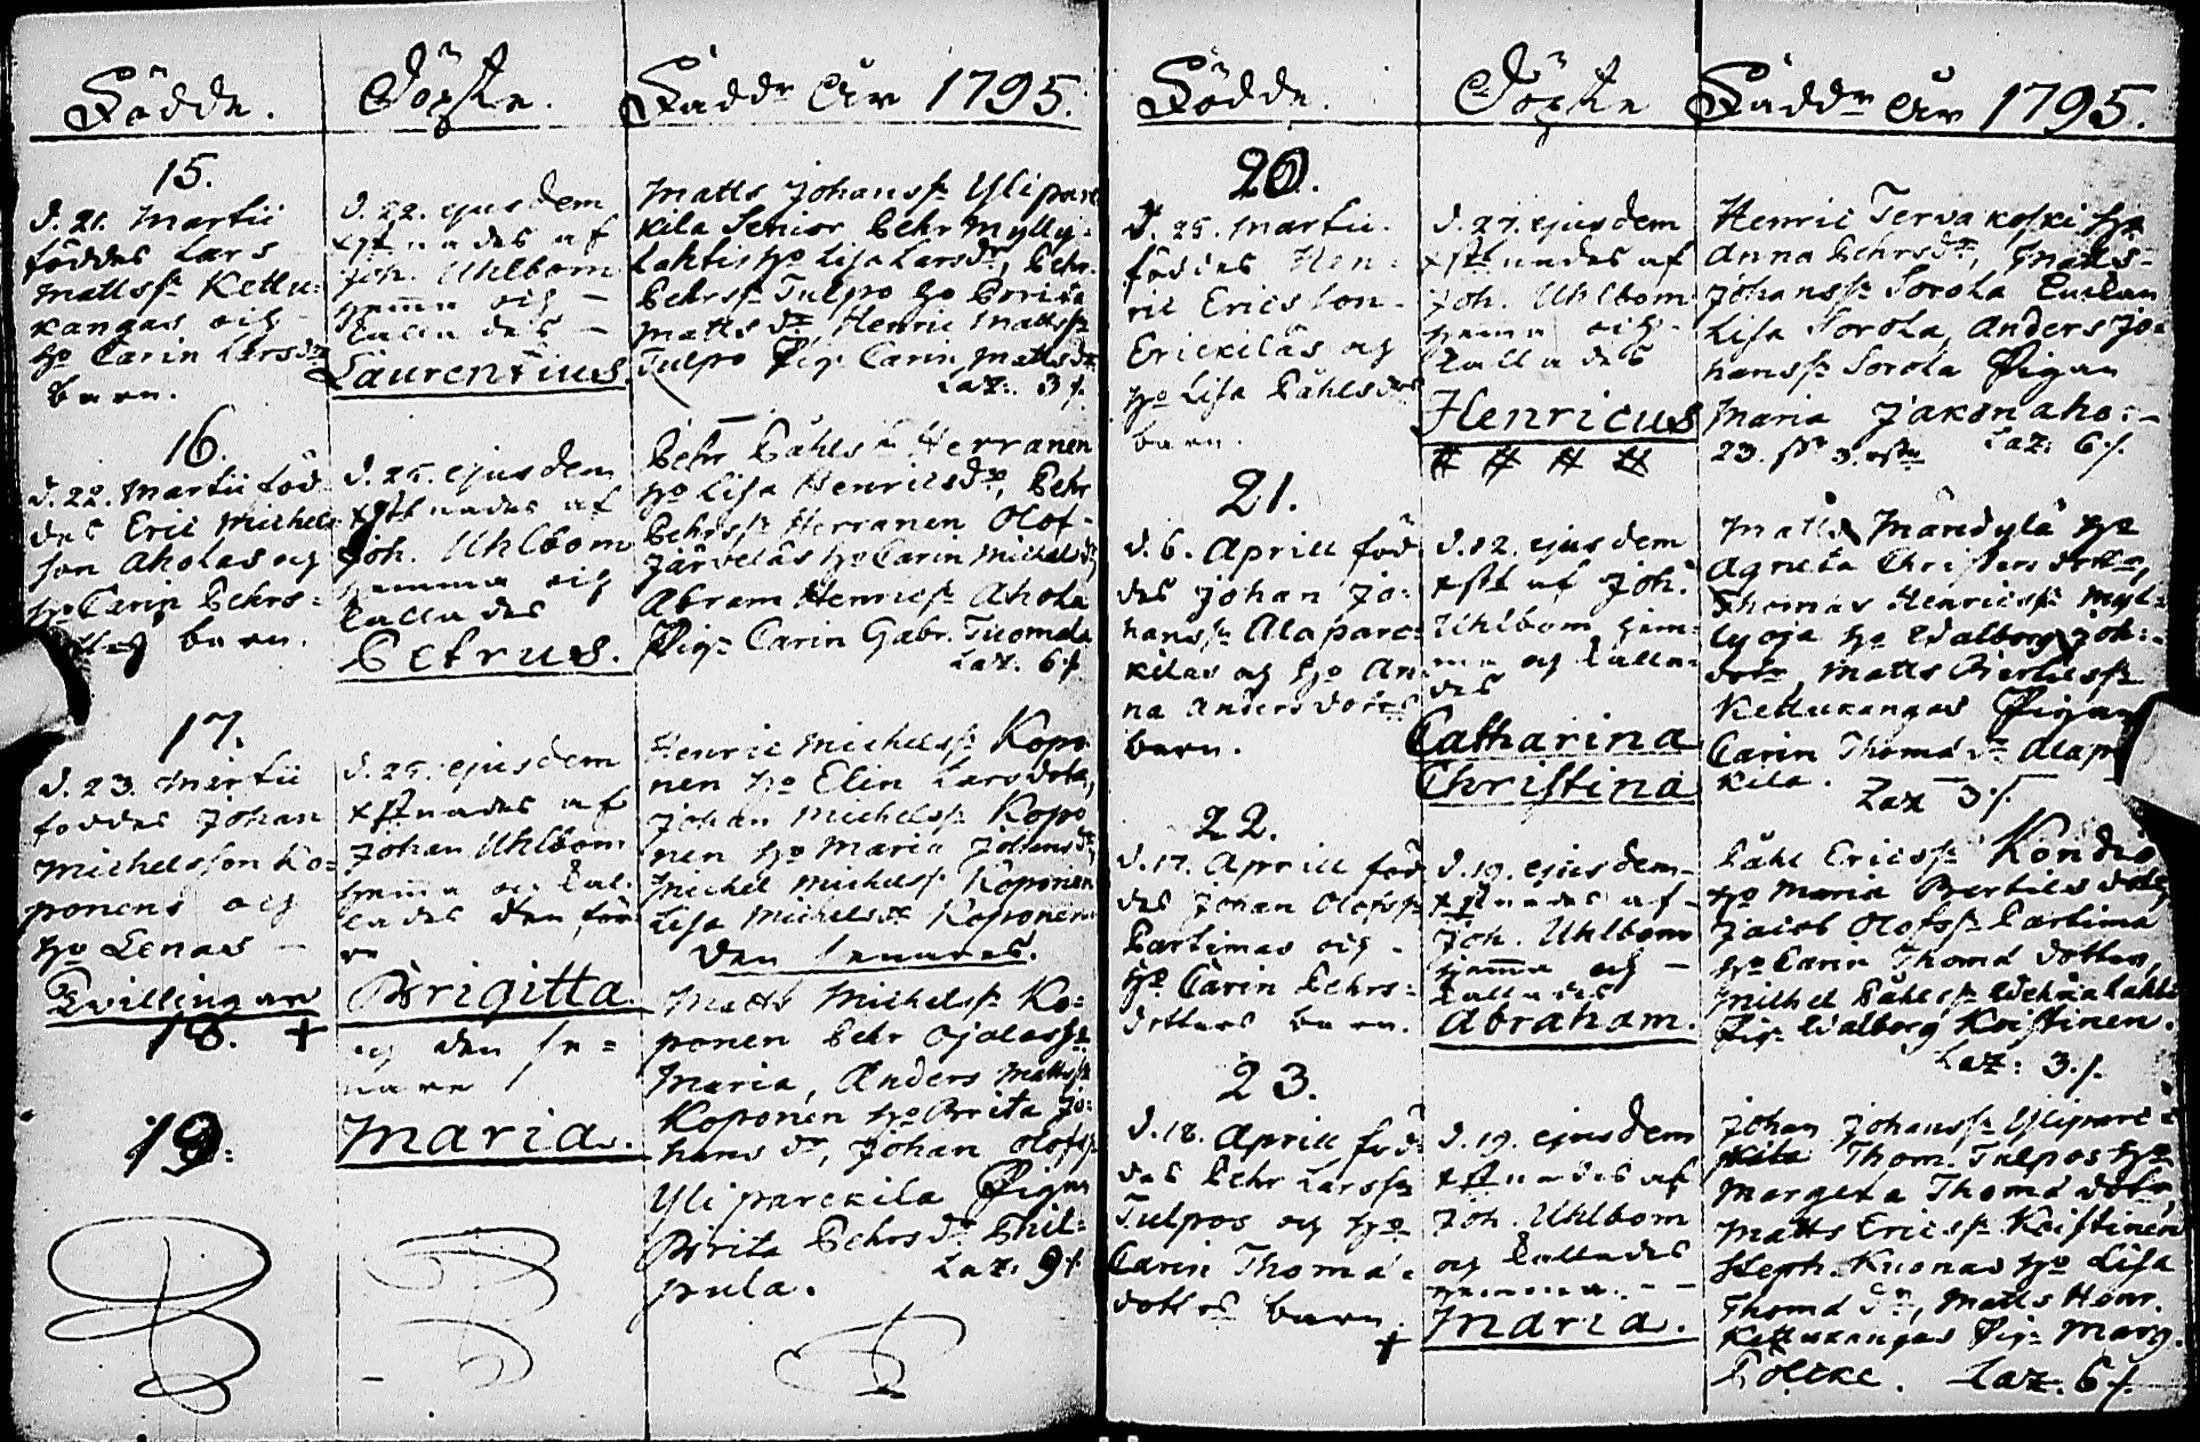 Födde.
Döpte.
Faddr År 1795.
15.
d. 21. Martii
föddes Lars
Mattss: Kettu=
kangas och
ho Carin Larsdr
barn.
d. 22. ejusdem
xstnades af
Joh. Uhlbom
hema och
kallades
Laurentius.
Matts Johanss: Ylipare
kila Senior Pehr Mylly=
lahti ho Lisa Larsdr, Pehr
Pehrss: Tulpo ho Brita
Mattsdr, Henric Mattss:
Tulpo Pig: Carin Mattsdr
Laz: 3 /.
16.
d. 22. Martii föd
des Eric Michels
son Aholas och
ho Carin Pehrs=
barn.
d. 25. ejusdem
xstnades af
Joh. Uhlbom
hemma och
kallades
Petrus.
Pehr Påhls: Herranen
ho Lisa Henricsdr, Pehr
Pehrss: Herranen Olof
Järveläs ho Carin Michelsdr
Abram Henricss: Ahola
Pig: Carin Gabr. Tuomala
Laz. 6 /.
17.
d. 23. Martii
föddes Johan
Michelsson Ko=
ponens och
ho Lenas
Tvillingar
18. +
19.
d. 25. ejusdem
xstnades af
Johan Uhlbom
hema och kal=
lades den för
re
Brigitta
och den se=
nare
Maria.
Henric Michelss: Kopo
nen ho Elin Larsdotr,
Johan Michelss: Kopo
nen ho Maria Johansdr,
Michel Michelss: Koponen
Lisa Michelsdr Koponen
Den senares.
Matts Michelss: Ko=
ponen Pehr Ojalas ho
Maria, Anders Mattss:
Koponen ho Brita Jo=
hansdr, Johan Olofss:
Yliparckila Pigan
Brita Pehrsdr Phil=
pula. Laz: 9 /.
Födde.
Döpte
Faddr År 1795.
20.
d. 25. Martii
föddes Hen=
ric Ericsson
Erickiläs och
ho Lisa Påhlsdrs
barn.
d. 27. ejusdem
xstnades af
Joh. Uhlbom
hema och
kallades
Henricus
# # # #
Henric Tervakoski ho
Anna Pehrsdr, Matts
Johanss: Sorola Enkan
Lisa Sorola, Anders Jo=
hanss: Sorola Pigan
Maria Jakonaho.
Laz: 6 /.
21.
d. 6. Aprill föd
des Johan Jo=
hanss: Alaparc=
kilas och ho An
na Andersdotrs
barn.
d. 12. ejusdem
xstt af Joh.
Uhlbom hem=
ma och kalla=
des
Catharina
Christina
Matts Mändylä ho
Agneta Christersdotter,
Thomas Henricss: Myl=
lyoja ho Walborg Joh:
dotr, Matts Bertilss:
Kettukangas Pigan
Carin Thomædr Alapar
kila. Laz 3 /.
22.
d. 17. Aprill föd
des Johan Olofss:
Partimas och
ho Carin Pehrs=
dotters barn.
d. 19. ejusdem
xstnades af
Joh. Uhlbom
hema och
kallades
Abraham.
Påhl Ericss: Kondio
ho Maria Bertilsdotr,
Jacob Olofss: Partima
ho Carin Thomædotter,
Michel Påhlss: Wehmalahti
Pig: Walborg Koistinen.
Laz: 3 /.
23.
d. 18. Aprill föd=
des Pehr Larss:
Tulpos och ho
Carin Thomæ=
dotrs barn.
+
d. 19. ejusdem
xstnades af
Joh. Uhlbom
och kallades
hemma.
Maria.
Johan Johanss: Ylipare=
kila Thom. Tulpos ho
Margeta Thomædotr,
Matts Ericss: Koistinen
Steph. Kuonas ho Lisa
Thomædr, Matts Henr.
Kettukangas Pig: Marg.
Pölcke. Laz. 6 /.